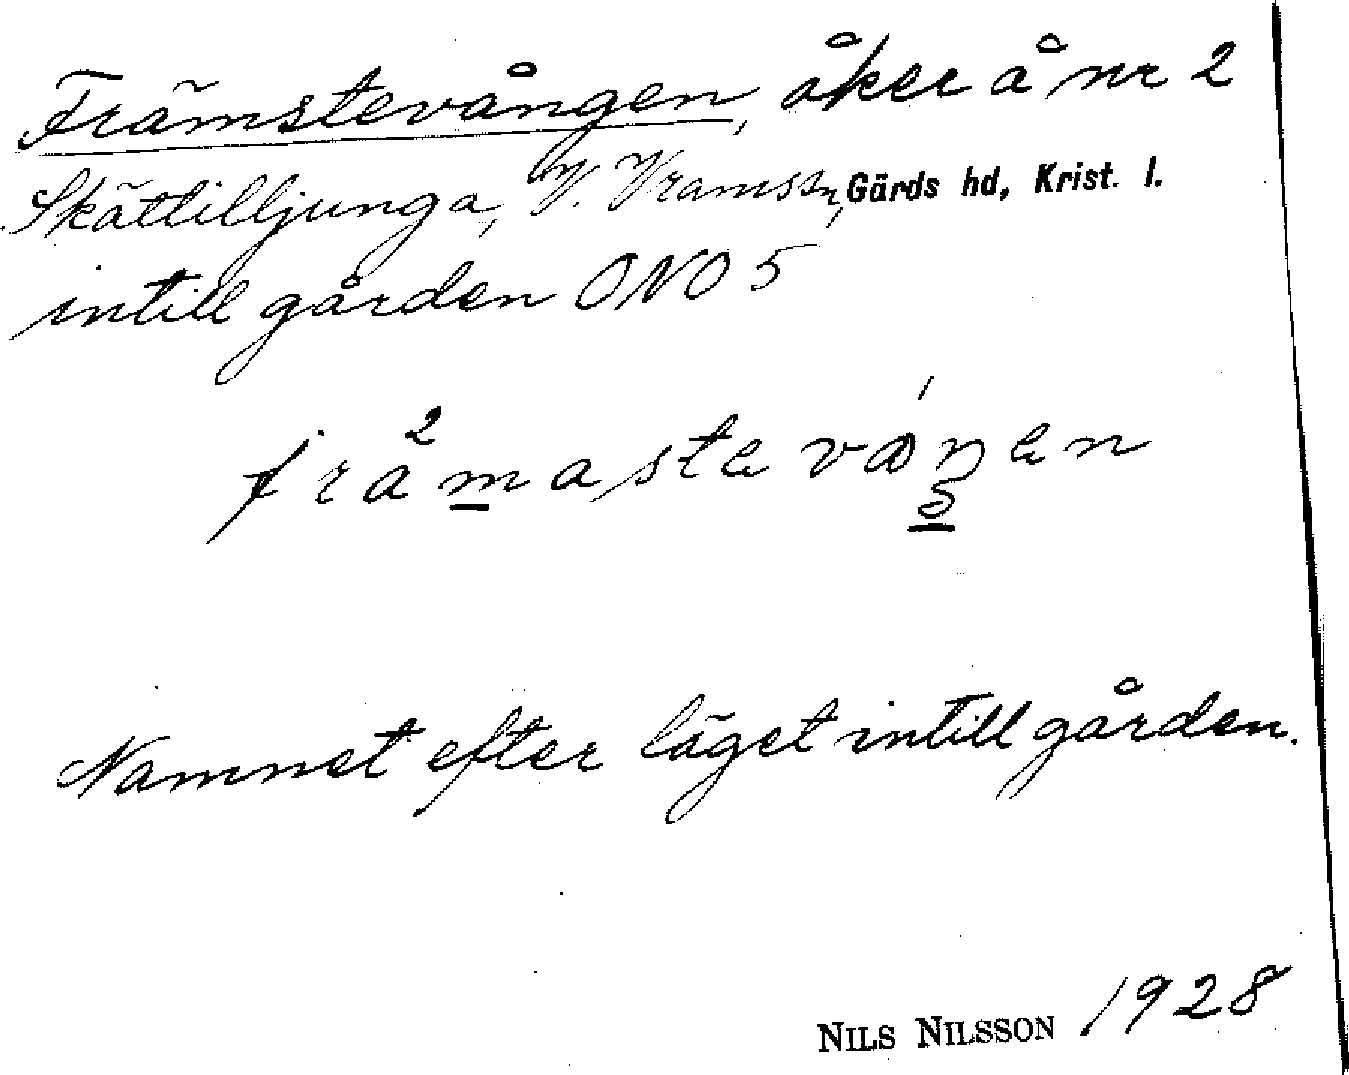 Främstevången, åker å nr 2
Skättilljunga, V. Vramssn, Gärds hd, Krist. l.
intill gården ONO 5
fråmastevåŋen
Namnet efter läget intill gården.
NILS NILSSON 1928